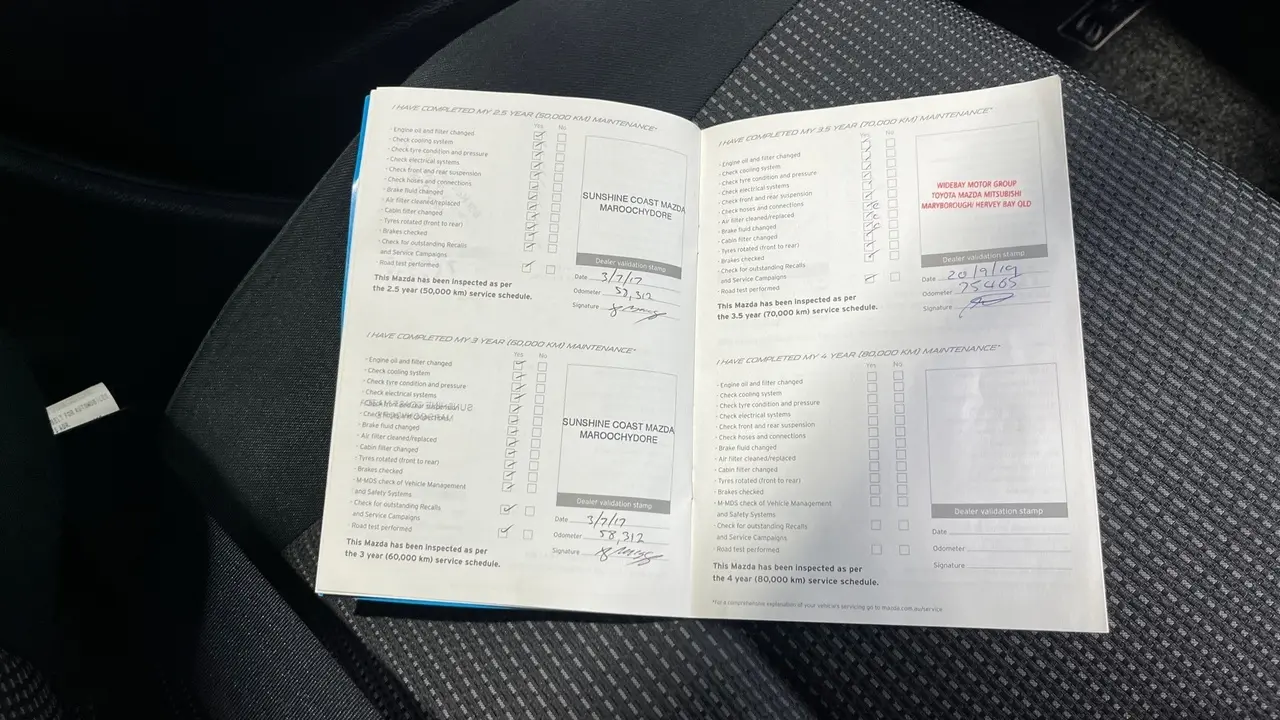 I HAVE COMPLETED MY 2.5 YEAR (50,000 KM) MAINTENANCE*
Yes No
- Engine oil and filter changed
- Check cooling system
- Check tyre condition and pressure
- Check electrical systems
- Check front and rear suspension
- Check hoses and connections
- Brake fluid changed
- Air filter cleaned/replaced
- Cabin filter changed
- Tyres rotated (front to rear)
- Brakes checked
- Check for outstanding Recalls
and Service Campaigns
- Road test performed
This Mazda has been inspected as per
the 2.5 year (50,000 km) service schedule.
SUNSHINE COAST MAZDA
MAROOCHYDORE
Dealer validation stamp
Date 3/7/17
Odometer 58,312
Signature
I HAVE COMPLETED MY 3 YEAR (60,000 KM) MAINTENANCE*
Yes No
- Engine oil and filter changed
- Check cooling system
- Check tyre condition and pressure
- Check electrical systems
- Check front and rear suspension
- Check hoses and connections
- Brake fluid changed
- Air filter cleaned/replaced
- Cabin filter changed
- Tyres rotated (front to rear)
- Brakes checked
- M-MDS check of Vehicle Management
and Safety Systems
- Check for outstanding Recalls
and Service Campaigns
- Road test performed
This Mazda has been inspected as per
the 3 year (60,000 km) service schedule.
SUNSHINE COAST MAZDA
MAROOCHYDORE
Dealer validation stamp
Date 3/7/17
Odometer 58,312
Signature
I HAVE COMPLETED MY 3.5 YEAR (70,000 KM) MAINTENANCE*
Yes No
- Engine oil and filter changed
- Check cooling system
- Check tyre condition and pressure
- Check electrical systems
- Check front and rear suspension
- Check hoses and connections
- Air filter cleaned/replaced
- Brake fluid changed
- Cabin filter changed
- Tyres rotated (front to rear)
- Brakes checked
- Check for outstanding Recalls
and Service Campaigns
- Road test performed
This Mazda has been inspected as per
the 3.5 year (70,000 km) service schedule.
WIDEBAY MOTOR GROUP
TOYOTA MAZDA MITSUBISHI
MARYBOROUGH/ HERVEY BAY QLD
Dealer validation stamp
Date 20/9/19
Odometer 75465
Signature
I HAVE COMPLETED MY 4 YEAR (80,000 KM) MAINTENANCE*
Yes No
- Engine oil and filter changed
- Check cooling system
- Check tyre condition and pressure
- Check electrical systems
- Check front and rear suspension
- Check hoses and connections
- Brake fluid changed
- Air filter cleaned/replaced
- Cabin filter changed
- Tyres rotated (front to rear)
- Brakes checked
- M-MDS check of Vehicle Management
and Safety Systems
- Check for outstanding Recalls
and Service Campaigns
- Road test performed
This Mazda has been inspected as per
the 4 year (80,000 km) service schedule.
Dealer validation stamp
Date
Odometer
Signature
*For a comprehensive explanation of your vehicle's servicing go to mazda.com.au/service